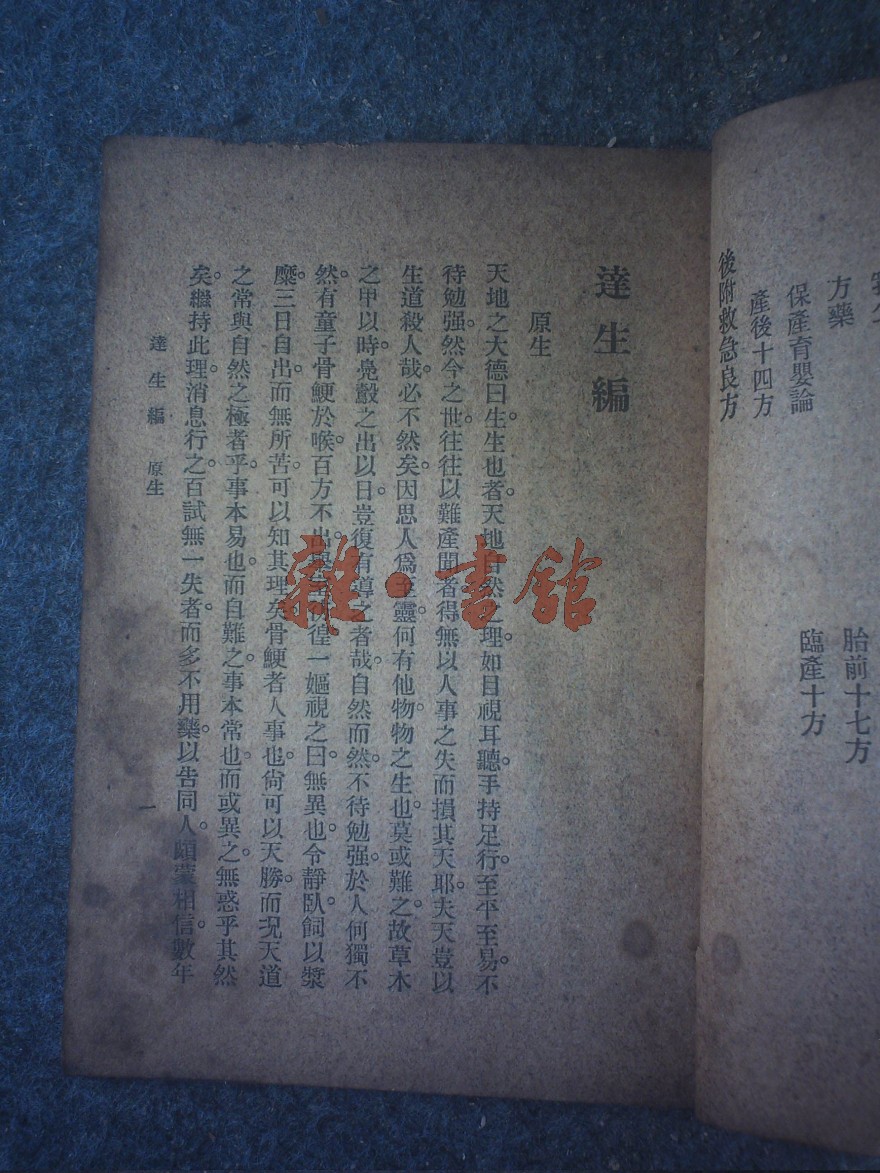 方藥
保產育嬰論
產後十四方
後附救急良方
胎前十七方
臨產十方
達生編
原生
天地之大德曰生。生也者。天地自然之理。如目視耳聽。手持足行。至平至易。不
待勉强。然今之世。往往以難產聞者。得無以人事之失而損其天耶。夫天豈以
生道殺人哉。必不然矣。因思人爲至靈。何有他物。物之生也。莫或難之。故草木
之甲以時。鳧鷇之出以日。豈復有導之者哉。自然而然。不待勉强。於人何獨不
然。有童子骨鯁於喉。百方不出。徨一嫗視之曰。無異也。令靜臥。飼以漿
糜。三日自出。而無所苦。可以知其理矣。骨鯁者人事也。尙可以天勝。而况天道
之常。與自然之極者乎。事本易也。而自難之。事本常也。而或異之。無惑乎其然
矣。繼持此理。消息行之。百試無一失者。而多不用藥。以告同人。頗蒙相信。數年
達生編 原生
一
雜·書館